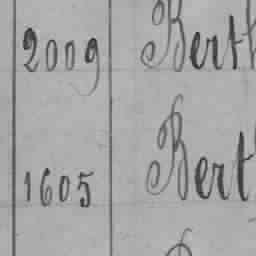 2009 Bert
1605 Bert